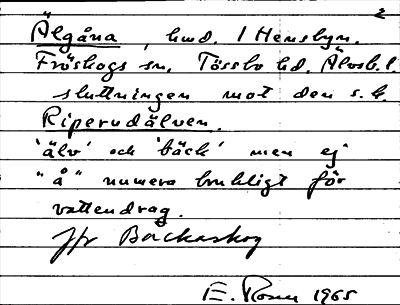 2
Älgåna, hmd. 1 Hensbyn.
Fröskogs sn. Tössbo hd. Älvsb. l.
sluttningen mot den s. k.
Riperudälven.
'älv' och 'bäck' men ej
"å" numera brukligt för
vattendrag.
Jfr Backaskog
E. Rosén 1965